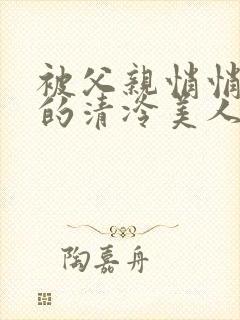 被父亲悄悄
的清冷美人
陶嘉舟